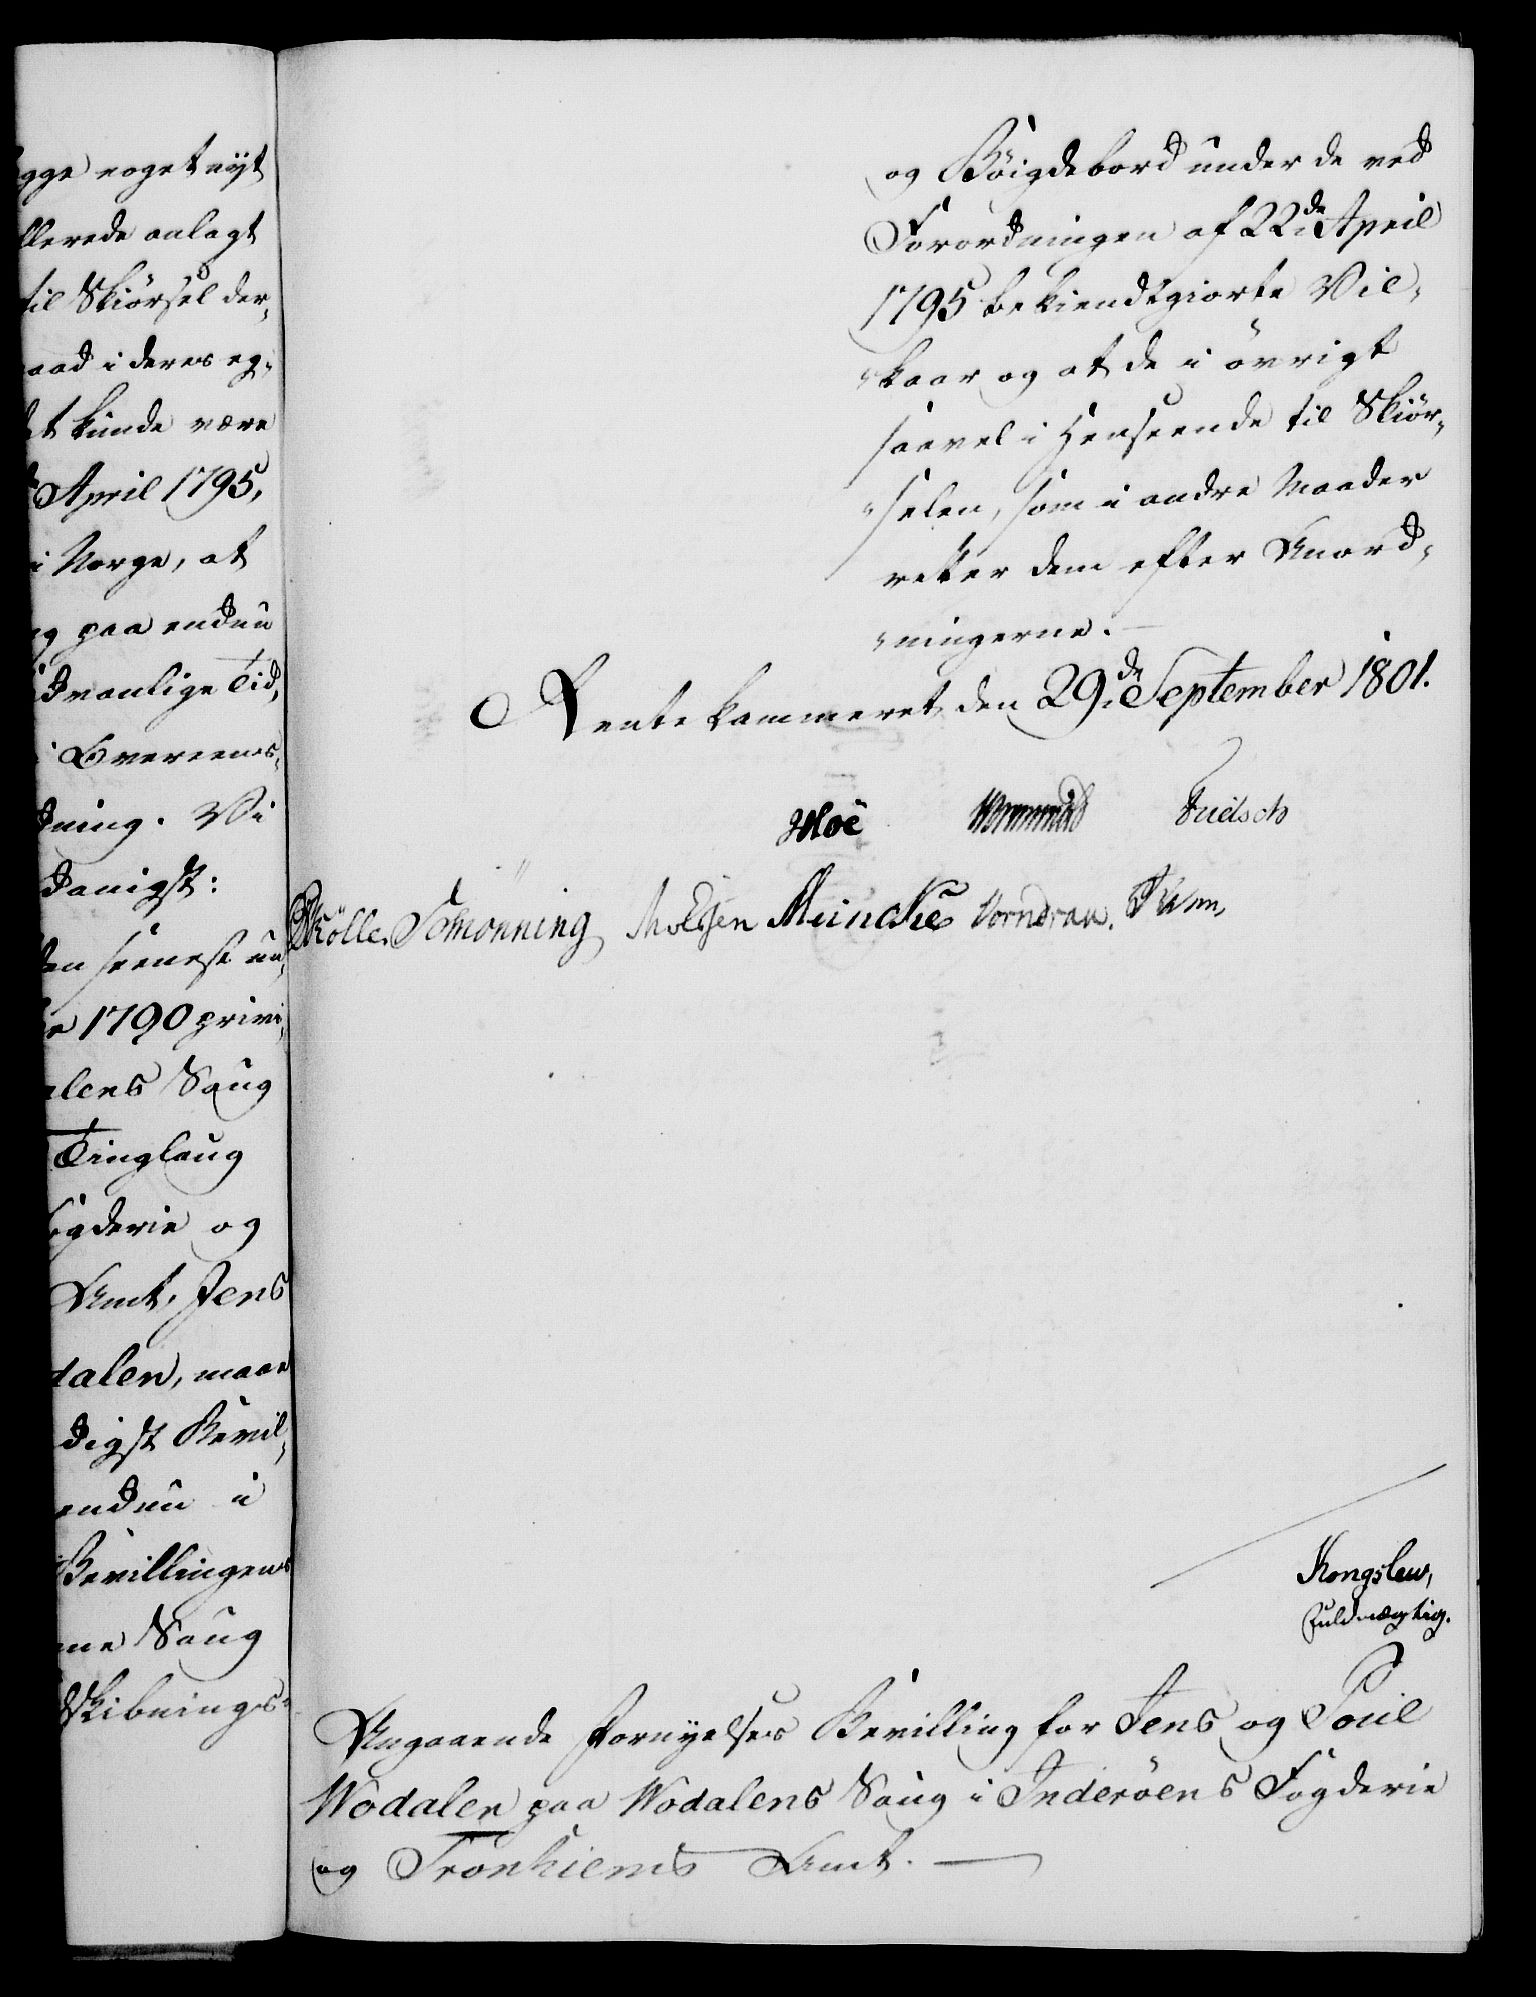 gge noget nyt
llerede anlagt
til Skiörsel der,
aad i deres eg,
et kunde være
April 1795,
i Norge, at
og paa endnu
dvanlige Tid,
Overeens,
dning. Vi
danigst:
den seenest un,
1790 privi,
alens Saug
Tinglaug
ogderie og
Amt, Jens
dalen, maae
digst Bevil,
endnu i
Bevillingens
me Saug
dskibnings-
og Böigdebord under de ved
Forordningen af 22de April
1795 bekiendtgiorte Vil,
„kaar og at de i övrigt
saavel i Henseende til Skiör,
„selen, som i andre Maader
retter dem efter Anord,
„ningerne.
Rentekammeret den 29de September 1801.
Moe Wormskiold
Schönning Müncke Vorndran.
Kongslew,
Fuldmægtig.
Angaaende Fornyelses Bevilling for Jens og Poul
Wodalen paa Wodalens Saug i Inderöens Fogderie
og Tronhiems Amt.